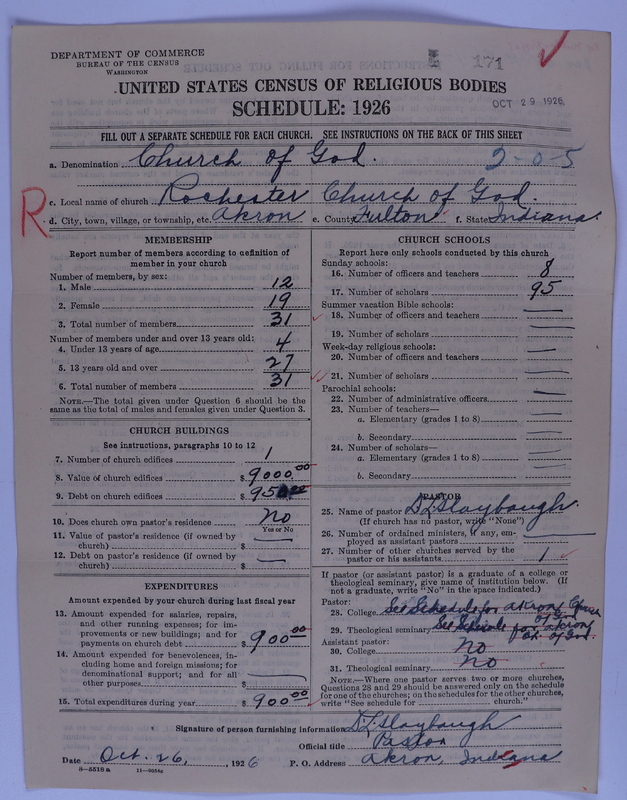 DEPARTMENT OF COMMERCE
BUREAU OF THE CENSUS
WASHINGTON
171
UNITED STATES CENSUS OF RELIGIOUS BODIES
SCHEDULE: 1926
OCT 29 1926
FILL OUT A SEPARATE SCHEDULE FOR EACH CHURCH. SEE INSTRUCTIONS ON THE BACK OF THIS SHEET
a. Denomination Church of God. 2-0-5
R
c. Local name of church Rochester Church of God.
d. City, town, village, or township, etc. Akron e. County Fulton f. State Indiana.
MEMBERSHIP
Report number of members according to definition of
member in your church
Number of members, by sex:
1. Male 12
2. Female 19
3. Total number of members 31
Number of members under and over 13 years old:
4. Under 13 years of age 4
5. 13 years old and over 27
6. Total number of members 31
NOTE.—The total given under Question 6 should be the
same as the total of males and females given under Question 3.
CHURCH BUILDINGS
See instructions, paragraphs 10 to 12
7. Number of church edifices 1
8. Value of church edifices $ 9000.00
9. Debt on church edifices $
10. Does church own pastor's residence No
Yes or No
11. Value of pastor's residence (if owned by
church) $ —
12. Debt on pastor's residence (if owned by
church) $ —
EXPENDITURES
Amount expended by your church during last fiscal year
13. Amount expended for salaries, repairs,
and other running expenses; for im-
provements or new buildings; and for
payments on church debt $ 900.00
14. Amount expended for benevolences, in-
cluding home and foreign missions; for
denominational support; and for all
other purposes $ —
15. Total expenditures during year $ 900.00
CHURCH SCHOOLS
Report here only schools conducted by this church
Sunday schools:
16. Number of officers and teachers 8
17. Number of scholars 95
Summer vacation Bible schools:
18. Number of officers and teachers —
19. Number of scholars —
Week-day religious schools:
20. Number of officers and teachers —
21. Number of scholars —
Parochial schools:
22. Number of administrative officers —
23. Number of teachers—
a. Elementary (grades 1 to 8) —
b. Secondary —
24. Number of scholars—
a. Elementary (grades 1 to 8) —
b. Secondary —
PASTOR
25. Name of pastor D L Slaybaugh.
(If church has no pastor, write "None")
26. Number of ordained ministers, if any, em-
ployed as assistant pastors —
27. Number of other churches served by the
pastor or his assistants 1
If pastor (or assistant pastor) is a graduate of a college or
theological seminary, give name of institution below. (If
not a graduate, write "No" in the space indicated.)
Pastor:
28. College See Schedule for Akron Church
of God
29. Theological seminary See Schedule for Akron
Ch. of God.
Assistant pastor:
30. College No
31. Theological seminary No
NOTE.—Where one pastor serves two or more churches,
Questions 28 and 29 should be answered only on the schedule
for one of the churches; on the schedules for the other churches,
write "See schedule for church."
Signature of person furnishing information D L Slaybaugh
Official title Pastor
Date Oct. 26, 1926 P. O. Address Akron, Indiana
8—5518a 11—9024z